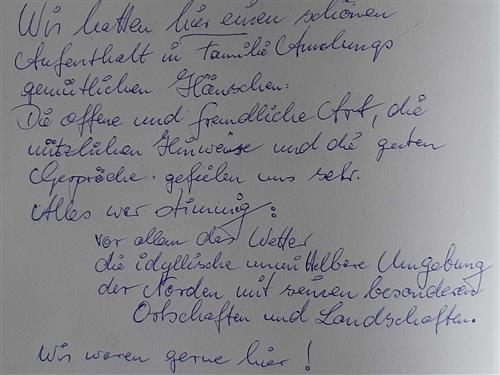 Wir hatten hier einen schönen
Aufenthalt in Familie Amelungs
gemütlichen Häuschen.
Die offene und freundliche Art, die
nützlichen Hinweise und die guten
Gespräche gefielen uns sehr.
Alles war stimmig:
vor allem das Wetter
die idyllische unmittelbare Umgebung
der Norden mit seinen besonderen
Ortschaften und Landschaften.
Wir waren gerne hier!